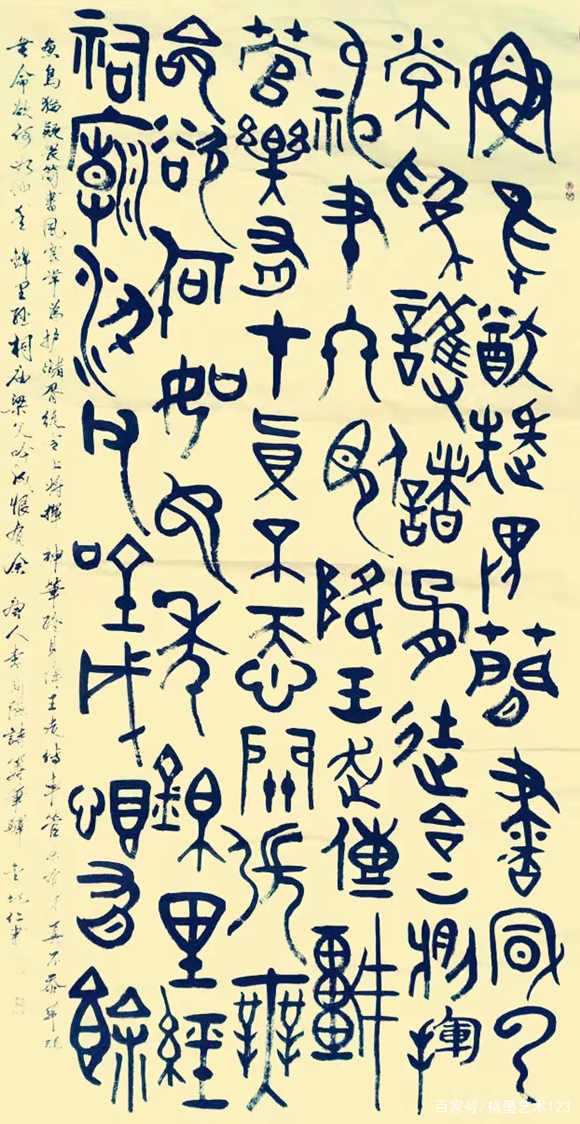 魚鳥猶疑畏簡書風雲
常為護儲胥徒令上將揮
神筆終見降王走傳車
管樂有才真不忝關張無
命欲何如他年錦里經
祠廟梁父吟成恨有餘
魚鳥猶疑畏簡書風雲常為護儲胥徒令上將揮神筆終見降王走傳車管樂有才真不忝關張
無命欲何如他年錦里經祠廟梁父吟成恨有余 唐人李商隱詩籌筆驛
百家号/楮墨艺术123